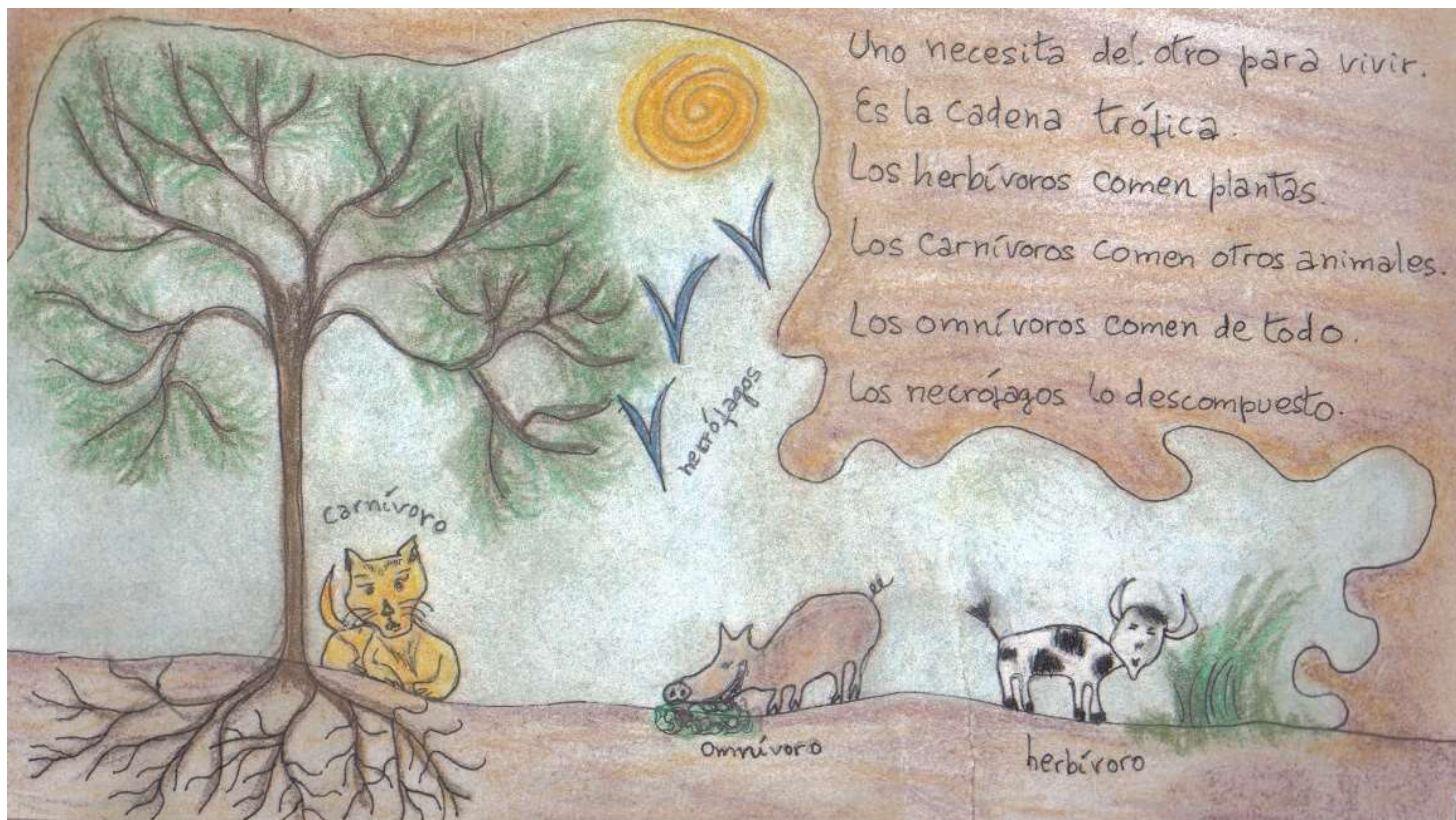 Uno necesita del otro para vivir.
Es la cadena trófica.
Los herbívoros comen plantas.
Los carnívoros comen otros animales.
Los omnívoros comen de todo.
Los necrófagos lo descompuesto.
necrófagos
carnívoro
omnívoro
herbívoro